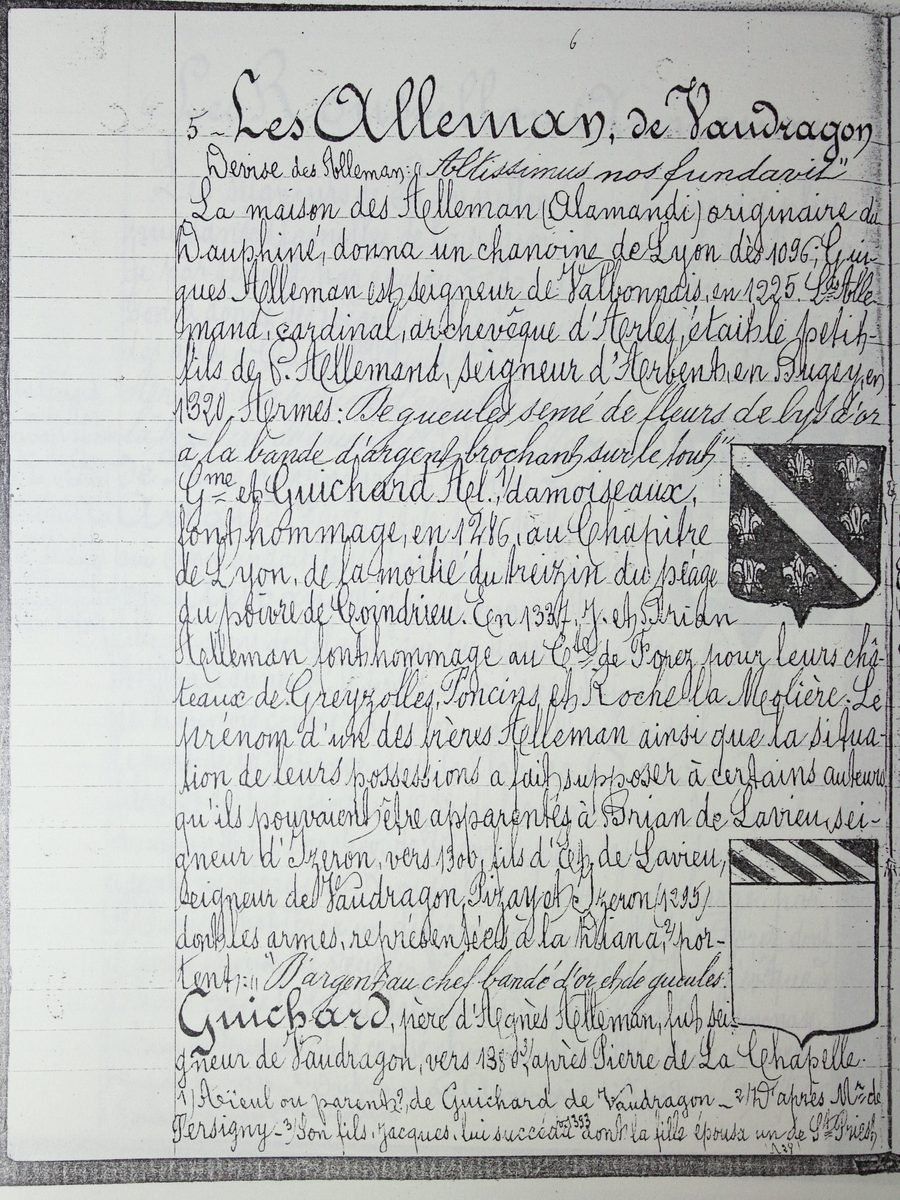 6
5 - Les Alleman, de Vaudragon
Devise des Alleman: "Altissimus nos fundavit"
La maison des Alleman (Alamandi) originaire du
Dauphiné, donna un chanoine de Lyon dès 1096; Gui-
gues Alleman est seigneur de Valbonnais, en 1225. Ls Alle
mand, cardinal, archevêque d'Arles, était le petit-
fils de P. Allemand, seigneur d'Arbent, en Bugey, en
1320. Armes: De gueules semé de fleurs de lys d'or
à la bande d'argent brochant sur le tout"
Gme et Guichard Al. 1) damoiseaux,
font hommage, en 1286, au Chapitre
de Lyon, de la moitié du treizin du péage
du poivre de Condrieu. En 1337, J. et Brian
Alleman font hommage au Cte de Forez pour leurs châ-
teaux de Greyzolles, Poncins et Roche la Molière. Le
prénom d'un des frères Alleman ainsi que la situa-
tion de leurs possessions a fait supposer à certains auteurs
qu'ils pouvaient être apparentés à Brian de Lavieu, sei-
gneur d'Izeron, vers 1300, fils d' de Lavieu,
seigneur de Vaudragon, Pizay et Izeron (1295)
dont les armes, représentées à la Diana, 2) por-
tent: "D'argent au chef bandé d'or et de gueules.
Guichard, père d'Agnès Alleman, fut sei-
gneur de Vaudragon, vers 1380 3) après Pierre de La Chapelle.
1) Aïeul ou parent?, de Guichard de Vaudragon - 2) D'après Mr de
Persigny - 3) Son fils, Jacques, lui succéda 1393 dont la fille épousa un de St Priest